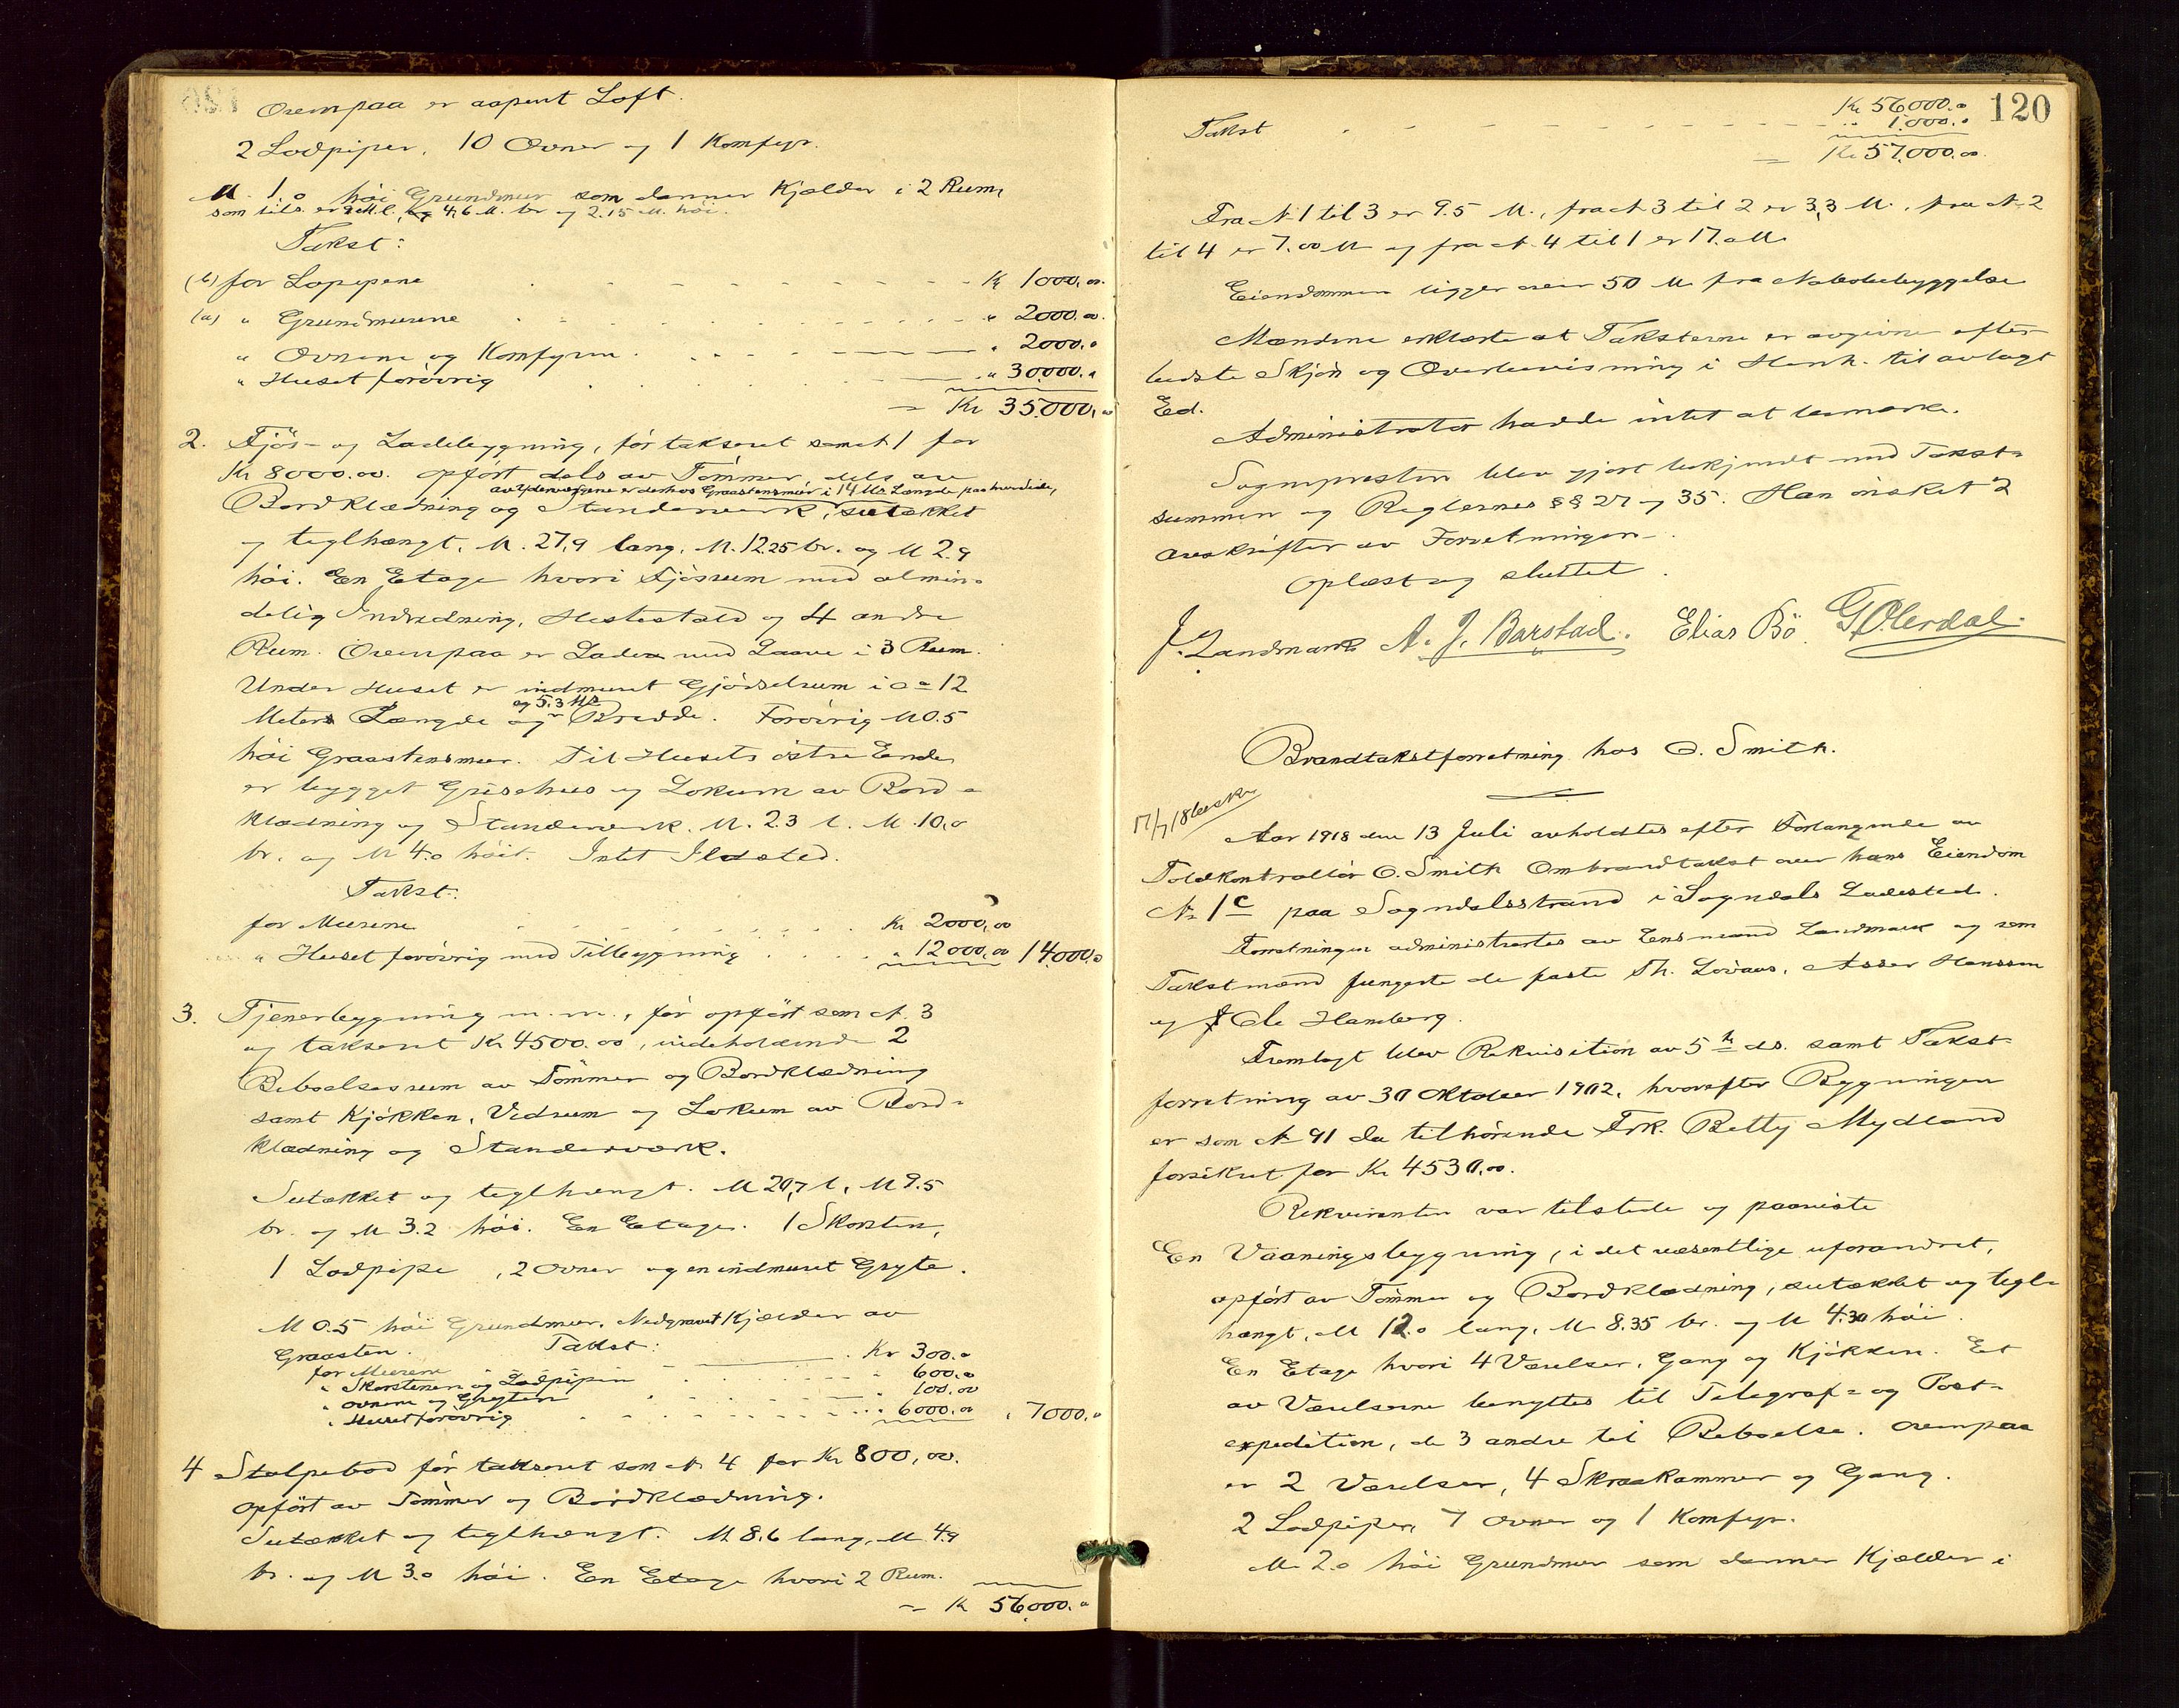 Ovenpaa er aapent Loft.
2 Lodpiper, 10 Ovner og 1 Komfyr.
M. 1.0 höi Grundmur som danner Kjælder i 2 Rum,
som tils. er 9 M. l., 4,6 M. br og 2.15 M. höi.
Takst:
(b) for Lopipene Kr 1000,00.
(a) " Grundmurene " 2000.00.
" Ovnene og Komfyren " 2000.0
" Huset forövrig " 30000.0
= Kr 35.000,00
2. Fjös- og Ladebygning, för taksert som № 1 for
Kr 8000.00. opfört dels av Tömmer dels av
av Ydervæggene er derhos Graastensmur i 14 Ms. Længde paa hver side,
Bordklædning og Standerverk, sutækket
og teglhængt, M. 27,9 lang, M. 12.25 br. og M 2.9
höi. En Etage hvori Fjösrum med almin-
delig Indredning, Hestestald og 4 andre
Rum. Ovenpaa er Lade med Laave i 3 Rum.
Under Huset er indmuret Gjödselrum i ca 12
og 5,3 Ms
Meters Længde og Bredde. Forövrig M 0.5
höi Graastensmur. Til Husets östre Ende
er bygget Grisehus og Lokum av Bord-
klædning og Standerverk. M. 2.3 l. M. 10,0
br. og M 4.0 höit. Intet Ildsted.
Takst:
for Murene Kr 2000,00
" Huset forövrig med Tilbygning " 12000,00 14000.0
3. Tjenerbygning m.m., för opfört som № 3
og taksert Kr 4500.00, indeholdende 2
Beboelsesrum av Tömmer og Bordklædning
samt Kjökken, Vedrum og Lokum av Bord-
klædning og Standerverk.
Sutækket og teglhængt. M 20,7 l, M 9.5
br. og M 3.2 höi. En Etage. 1 Skorsten,
1 Lodpipe, 2 Ovner og en indmuret Gryte.
M 0.5 höi Grundmur. Nedgravet Kjælder av
Graasten. Takst:
for Murene Kr 300.0
" Skorstenen og Lodpipen " 600.0
" Ovnene og Gryten " 100.00
" Huset forövrig " 6000.00 " 7000.0
4 Stolpebod för taksert som № 4 for Kr 800,00.
opfört av Tömmer og Bordklædning.
Sutækket og teglhængt. M 8,6 lang, M 4.9
br. og M 3.0 höi. En Etage hvori 2 Rum.
= Kr 56000.0
120
Kr 56000.0
Takst " 1000.0
= Kr 57.000.00
Fra № 1 til 3 er 9.5 M., fra № 3 til 2 er 3,3 M., fra № 2
til 4 er 7.00 M og fra № 4 til 1 er 17.0 M.
Eiendommen ligger over 50 M. fra Nabobebyggelse
Mændene erklærte at Taksterne er avgivne efter
bedste Skjön og Overbevisning i Henh. til avlagt
Ed.
Administrator hadde intet at bemærke.
Sogneprestin blev gjort bekjendt med Takst-
summen og Reglernes §§ 27 og 35. Han önsket 2
avskrifter av Forretningen.
Oplæst og sluttet.
J. Landmark A. J. Barstad. Elias Bö. G. Olerdal.
Brandtakstforretning hos O. Smith.
17/7 18 beskr
Aar 1918 den 13 Juli avholdtes efter Forlangende av
Toldkontrollör O. Smith Ombrandtakst over hans Eiendom
№ 1c paa Sogndalsstrand i Sogndals Ladested.
Forretningen administrertes av Lensmand Landmark og som
Takstmænd fungerte de faste Th. Lövaas, Asser Hanssen
og Ole Hamberg.
Fremlagt blev Rekvisition av 5te ds. samt Takst-
forretning av 30 Oktober 1902, hvorefter Bygningen
er som № 91 da tilhörende Frk. Betty Mydland
forsikret for Kr 4530.00.
Rekvirenten var tilstede og paaviste
En Vaaningsbygning, i det væsentlige uforandret,
opfört av Tömmer og Bordklædning, sutækket og tegl-
hængt, M 12.0 lang, M 8.35 br. og M 4.30 höi.
En Etage hvori 4 Værelser, Gang og Kjökken. Et
av Værelserne benyttes til Telegraf- og Post-
expedition, de 3 andre til Beboelse. Ovenpaa
er 2 Værelser, 4 Skraakammer og Gang.
2 Lodpiper, 7 Ovner og 1 Komfyr.
M 2.0 höi Grundmur som danner Kjælder i